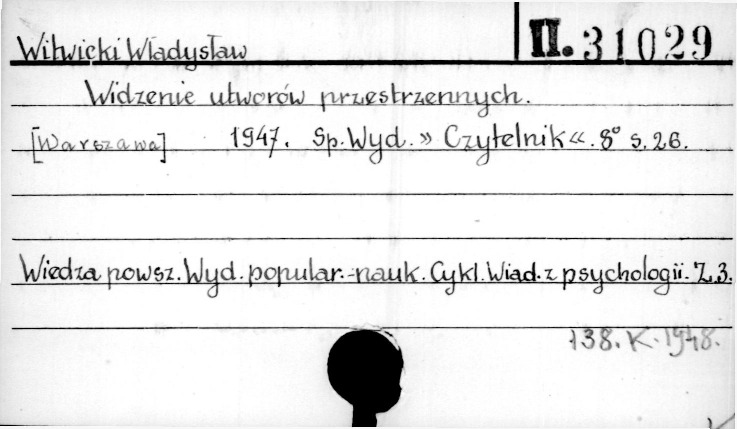 II. 31029
Witwicki Władysław
Widzenie utworów przestrzennych.
[Warszawa] 1947. Sp. Wyd. » Czytelnik «. 8° s. 26.
Wiedza powsz. Wyd. popular.-nauk. Cykl. Wiad. z psychologii. Z. 3.
138. K. 1948.